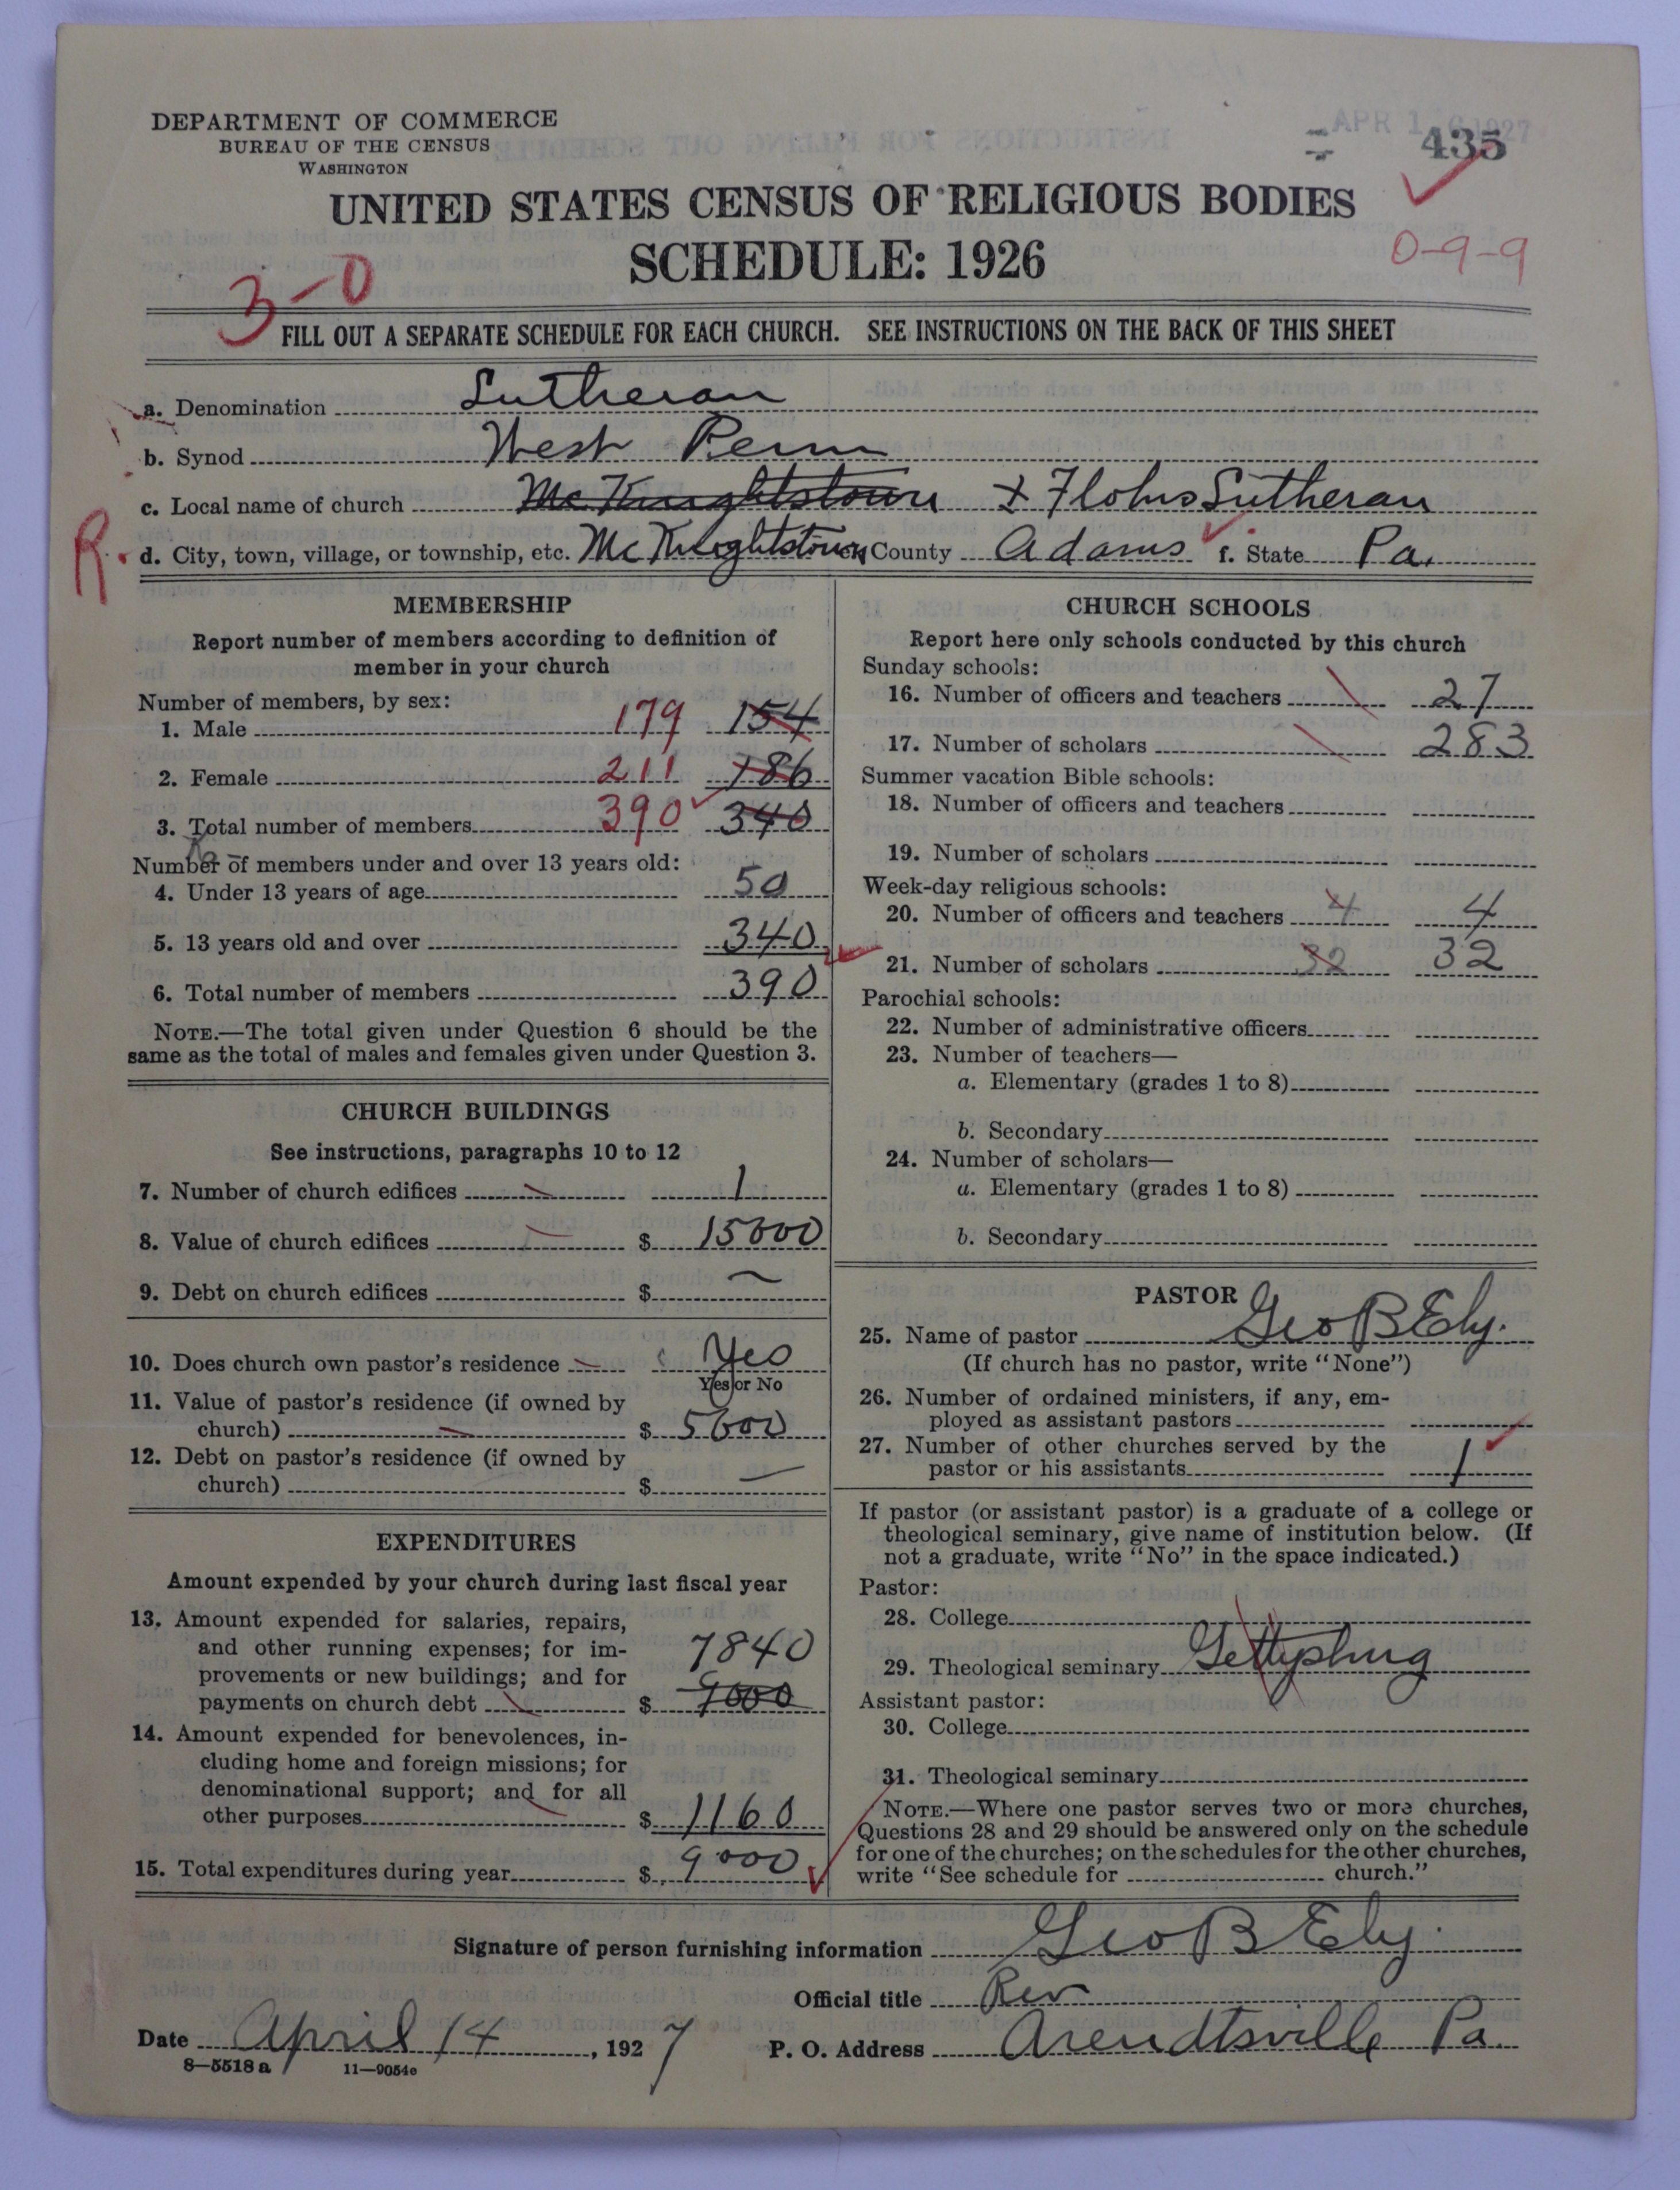 DEPARTMENT OF COMMERCE
BUREAU OF THE CENSUS
WASHINGTON
APR 1 6 1927
435
UNITED STATES CENSUS OF RELIGIOUS BODIES
SCHEDULE: 1926
0-9-9
3-0
FILL OUT A SEPARATE SCHEDULE FOR EACH CHURCH. SEE INSTRUCTIONS ON THE BACK OF THIS SHEET
a. Denomination Lutheran
b. Synod West Penn
c. Local name of church McKnightstown & Flohrs Lutheran
R. d. City, town, village, or township, etc. McKnightstown County Adams f. State Pa.
MEMBERSHIP
Report number of members according to definition of
member in your church
Number of members, by sex:
1. Male 179 154
2. Female 211 186
3. Total number of members 390 340
Number of members under and over 13 years old:
4. Under 13 years of age 50
5. 13 years old and over 340
6. Total number of members 390
NOTE.—The total given under Question 6 should be the
same as the total of males and females given under Question 3.
CHURCH BUILDINGS
See instructions, paragraphs 10 to 12
7. Number of church edifices 1
8. Value of church edifices $ 15000
9. Debt on church edifices $ —
10. Does church own pastor's residence Yes
Yes or No
11. Value of pastor's residence (if owned by
church) $ 5000
12. Debt on pastor's residence (if owned by
church) $ —
EXPENDITURES
Amount expended by your church during last fiscal year
13. Amount expended for salaries, repairs,
and other running expenses; for im-
provements or new buildings; and for
payments on church debt $ 7840
9000
14. Amount expended for benevolences, in-
cluding home and foreign missions; for
denominational support; and for all
other purposes $ 1160
15. Total expenditures during year $ 9000
CHURCH SCHOOLS
Report here only schools conducted by this church
Sunday schools:
16. Number of officers and teachers 27
17. Number of scholars 283
Summer vacation Bible schools:
18. Number of officers and teachers
19. Number of scholars
Week-day religious schools:
20. Number of officers and teachers 4 4
21. Number of scholars 32 32
Parochial schools:
22. Number of administrative officers
23. Number of teachers—
a. Elementary (grades 1 to 8)
b. Secondary
24. Number of scholars—
a. Elementary (grades 1 to 8)
b. Secondary
PASTOR
25. Name of pastor Geo B Ely.
(If church has no pastor, write "None")
26. Number of ordained ministers, if any, em-
ployed as assistant pastors
27. Number of other churches served by the
pastor or his assistants 1
If pastor (or assistant pastor) is a graduate of a college or
theological seminary, give name of institution below. (If
not a graduate, write "No" in the space indicated.)
Pastor:
28. College
29. Theological seminary Gettysburg
Assistant pastor:
30. College
31. Theological seminary
NOTE.—Where one pastor serves two or more churches,
Questions 28 and 29 should be answered only on the schedule
for one of the churches; on the schedules for the other churches,
write "See schedule for church."
Signature of person furnishing information Geo B Ely.
Official title Rev
Date April 14, 1927 P. O. Address Arendtsville Pa.
8—5518 a 11—9054e